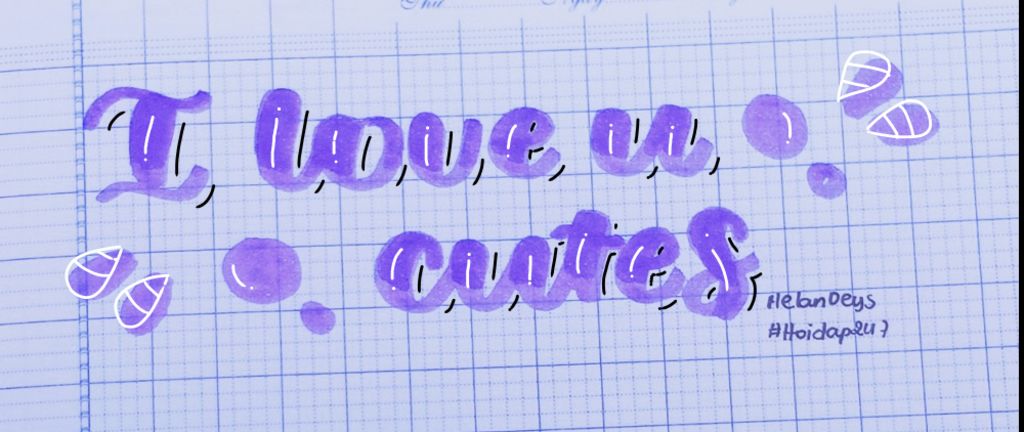 Thứ Ngày
I love u
cutes
HelanDeys
#Hoidap247